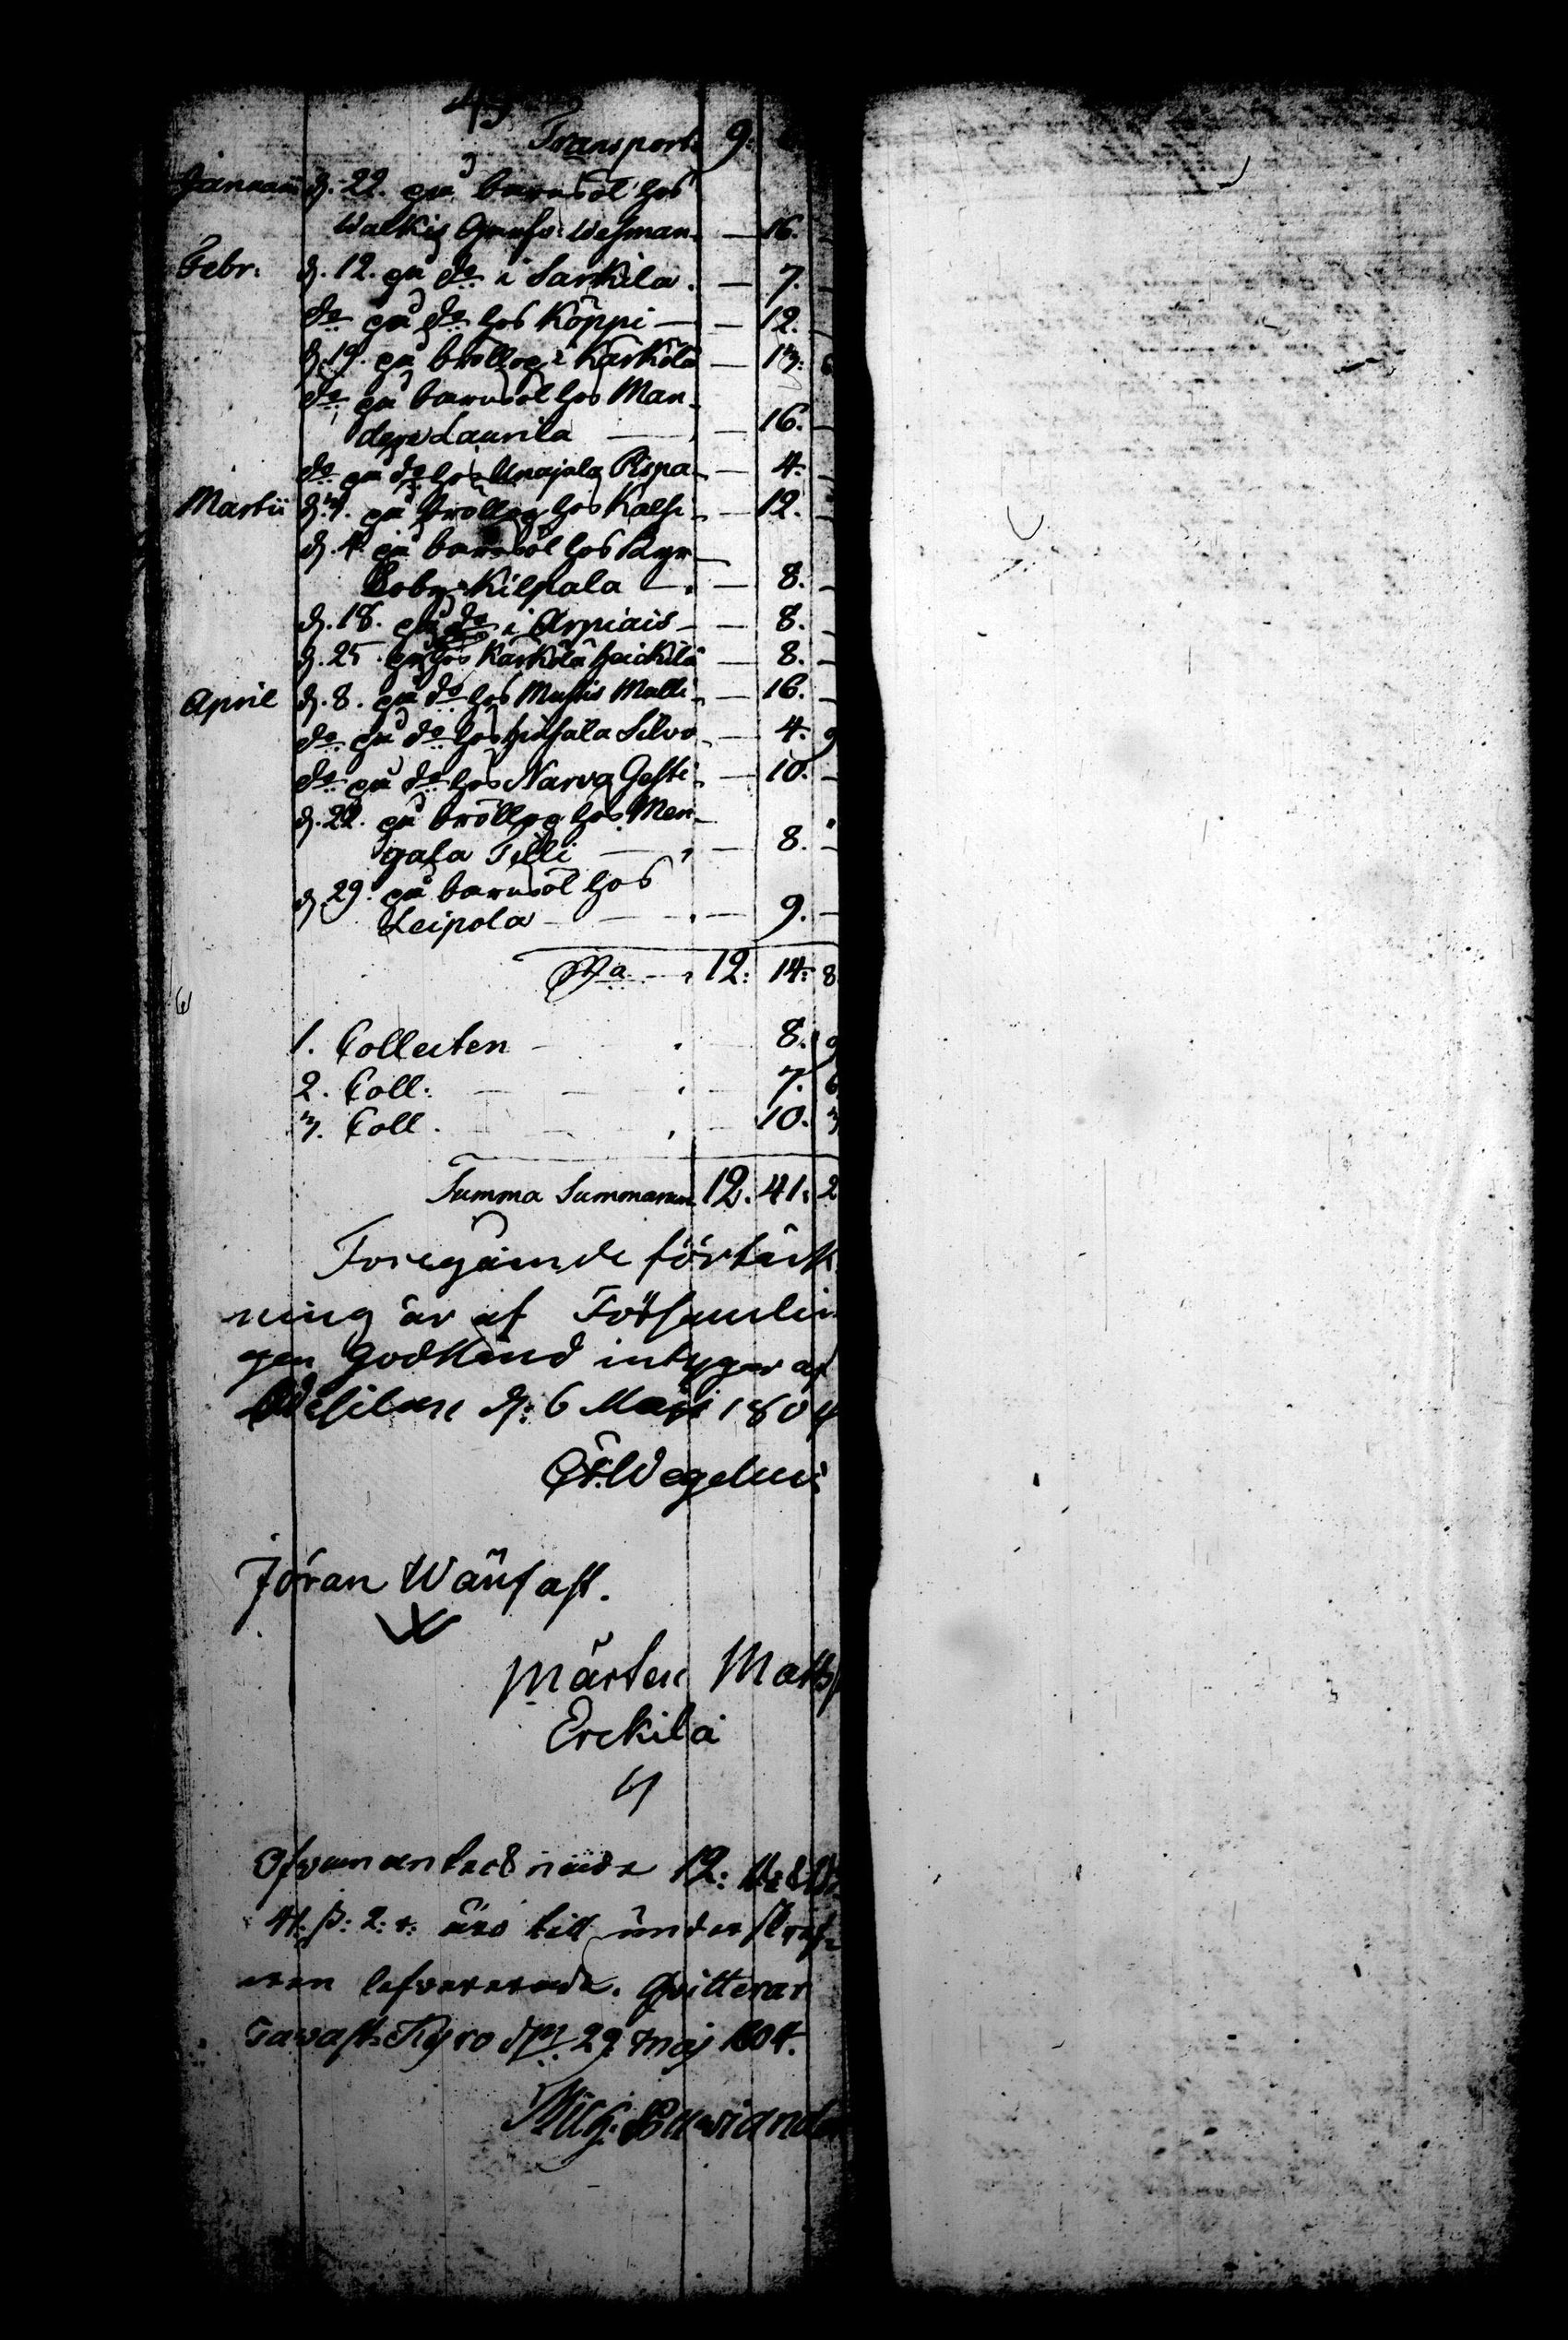 Transport. 9:
Januarii d. 22. på barnsöl hos
Walkis Wesman. — 16. —
Febr. d. 12. på do i Sarkila. — 7. —
do på do hos Köppi — — 12. —
d. 19. på bröllop i Kärkölä — 13: 6
do på barnsöl hos Man-
ders Laurila — — 16. —
do på do hos Unajala Pispa — 4. —
Martii d. 3. på bröllop hos Kalsi — 12. —
d. 4. på barnsöl hos Kyr-
koby Kilpala — — 8. —
d. 18. på do i Arpiais — — 8. —
d. 25. på hos Kärkölä Heickilä — 8. —
April d. 8. på do hos Mustis Malli — 16. —
do på do hos Huhtala Silvo — 4. 9
do på do hos Narva Gesti — 10. —
d. 22. på bröllop hos Men-
gala Tilli — — 8. —
d. 29. på barnsöl hos
Leipola — — 9. —
Sma — 12: 14: 8
1. Collecten — — 8. 9
2. Coll. — — 7. 6
3. Coll. — — 10. 3
Summa Summarum 12. 41: 2
Föregående förtäck
ning är af Församlin
gen godkänd intygar af
Wesilax d: 6 Maji 1804
Wegelius
Jöran Wänfast.
W
Mårten Matts
Erckilä
Ofvanantecknade 12:
41. ß: 2: r: äro till underskrif-
eren lefvererade. Qvitterar
Tavast Kyro d. 29 Maj 1804.
Mich. Lavidander